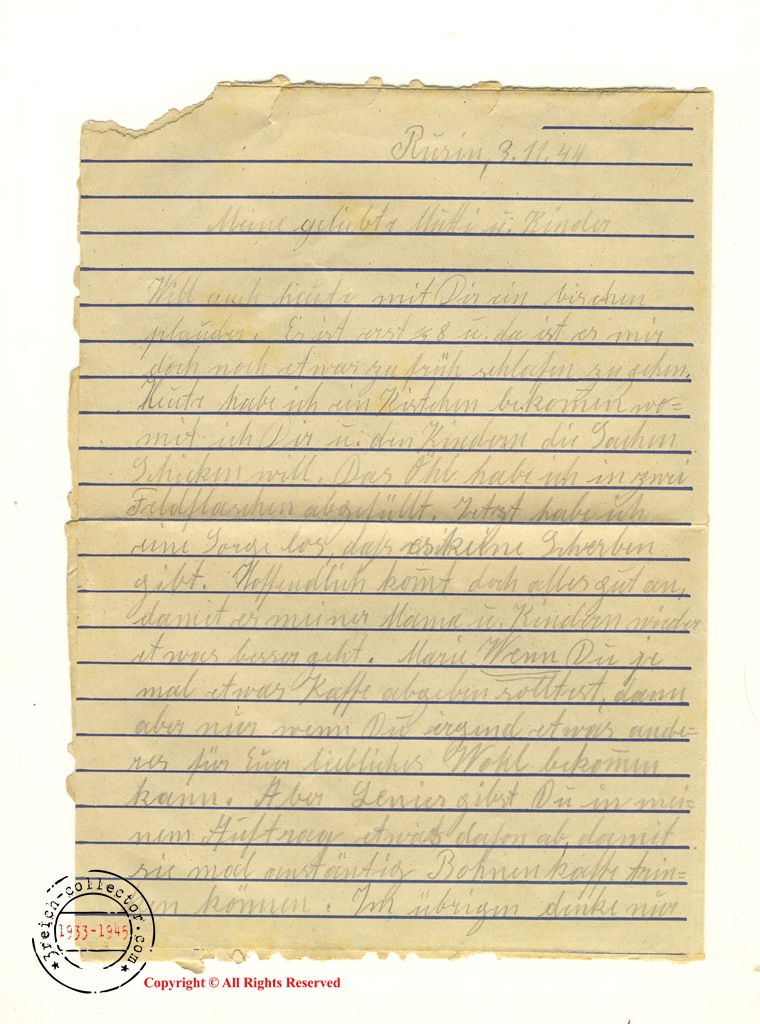 Rusin, 3.11.44
Meine geliebte Mutti u. Kinder
Will auch heute mit Dir ein bischen
plauder. Es ist erst 8 u. da ist es mir
doch noch etwas zu früh schlafen zu gehen.
Heute habe ich ein Kistchen bekommen wo=
mit ich Dir u. den Kindern die Sachen
Schicken will. Das Öhl habe ich in zwei
Feldflaschen abgefüllt. Jetzt habe ich
eine Sorge los, daß es keine Scherben
gibt. Hoffendlich kommt doch alles gut an,
damit es meiner Mama u. Kindern wieder
etwas besser geht. Marie Wenn Du je
mal etwas Kaffe abgeben solltest, dann
aber nur wenn Du irgend etwas ande=
res für Euer liebliches Wohl bekommen
kann. Aber Lenies gibst Du in mei=
nem Auftrag etwas dafon ab, damit
sie mal anstäntig Bohnenkaffe trin=
en können. Im übrigen denke nur
3reich-collector.com
1933-1945
Copyright © All Rights Reserved